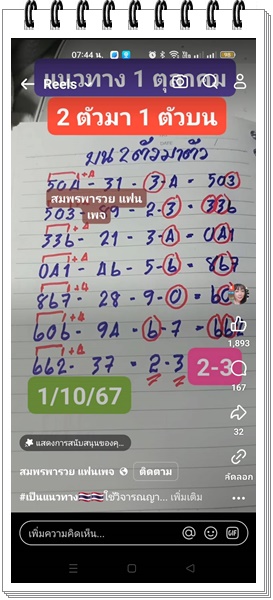 07:44 น.
แนวทาง 1 ตุลาคม
Reels
2 ตัวมา 1 ตัวบน
บน 2 ตัวมาตัว
50A - 31 - 3-A - 503
สมพรพารวย แฟนเพจ
503 - 89 - 2-3 - 336
336 - 21 - 3-A - 0A1
0A1 - A6 - 5-6 - 867
867 - 28 - 9-0 = 60
606 - 9A - 6-7 = 662
662 - 37 = 2-3
2-3
1/10/67
+A
+A
+4
+4
+4
1,893
167
32
คัดลอก
แสดงการสนับสนุนของคุ...
สมพรพารวย แฟนเพจ
ติดตาม
#เป็นแนวทาง ใช้วิจารณญา... เพิ่มเติม
เพิ่มความคิดเห็น...
GIF